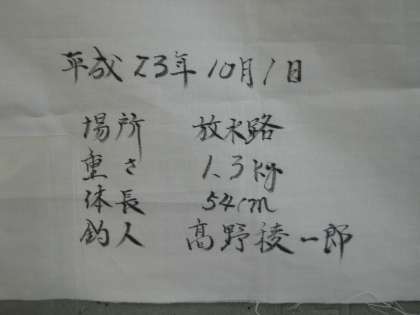 平成23年10月1日
場所 放水路
重さ 1.3kg
体長 54cm
釣人 高野稜一郎